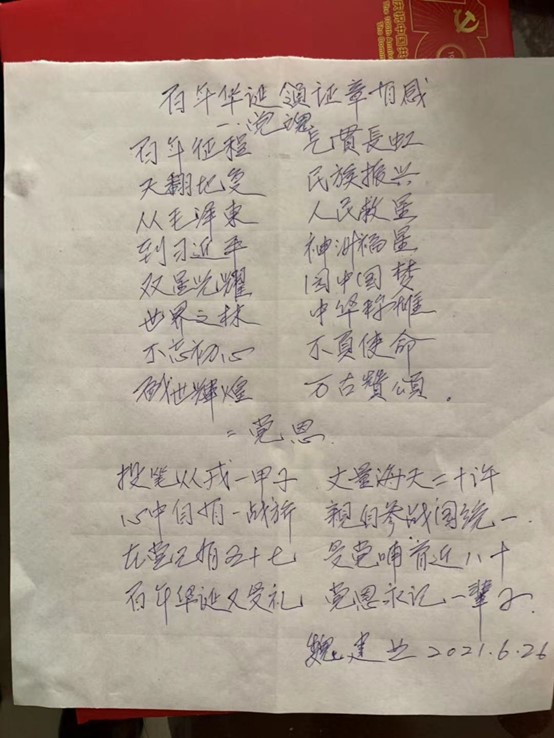 庆祝中国共
The 100th Anniv
百年华诞领证章有感
一、党魂
百年征程 气贯長虹
天翻地复 民族振兴
从毛泽東 人民救星
到习近平 神洲福星
双星光耀 园中国梦
世界之林 中华称雄
不忘初心 不負使命
盛世輝煌 万古贊頌。
二党恩
投笔从戎一甲子 丈量海天二十许
心中自有一战旂 親自参战国统一
在党已有五十七 受党哺育近八十
百年华诞又受礼 党恩永记一輩子
魏建业 2021.6.26